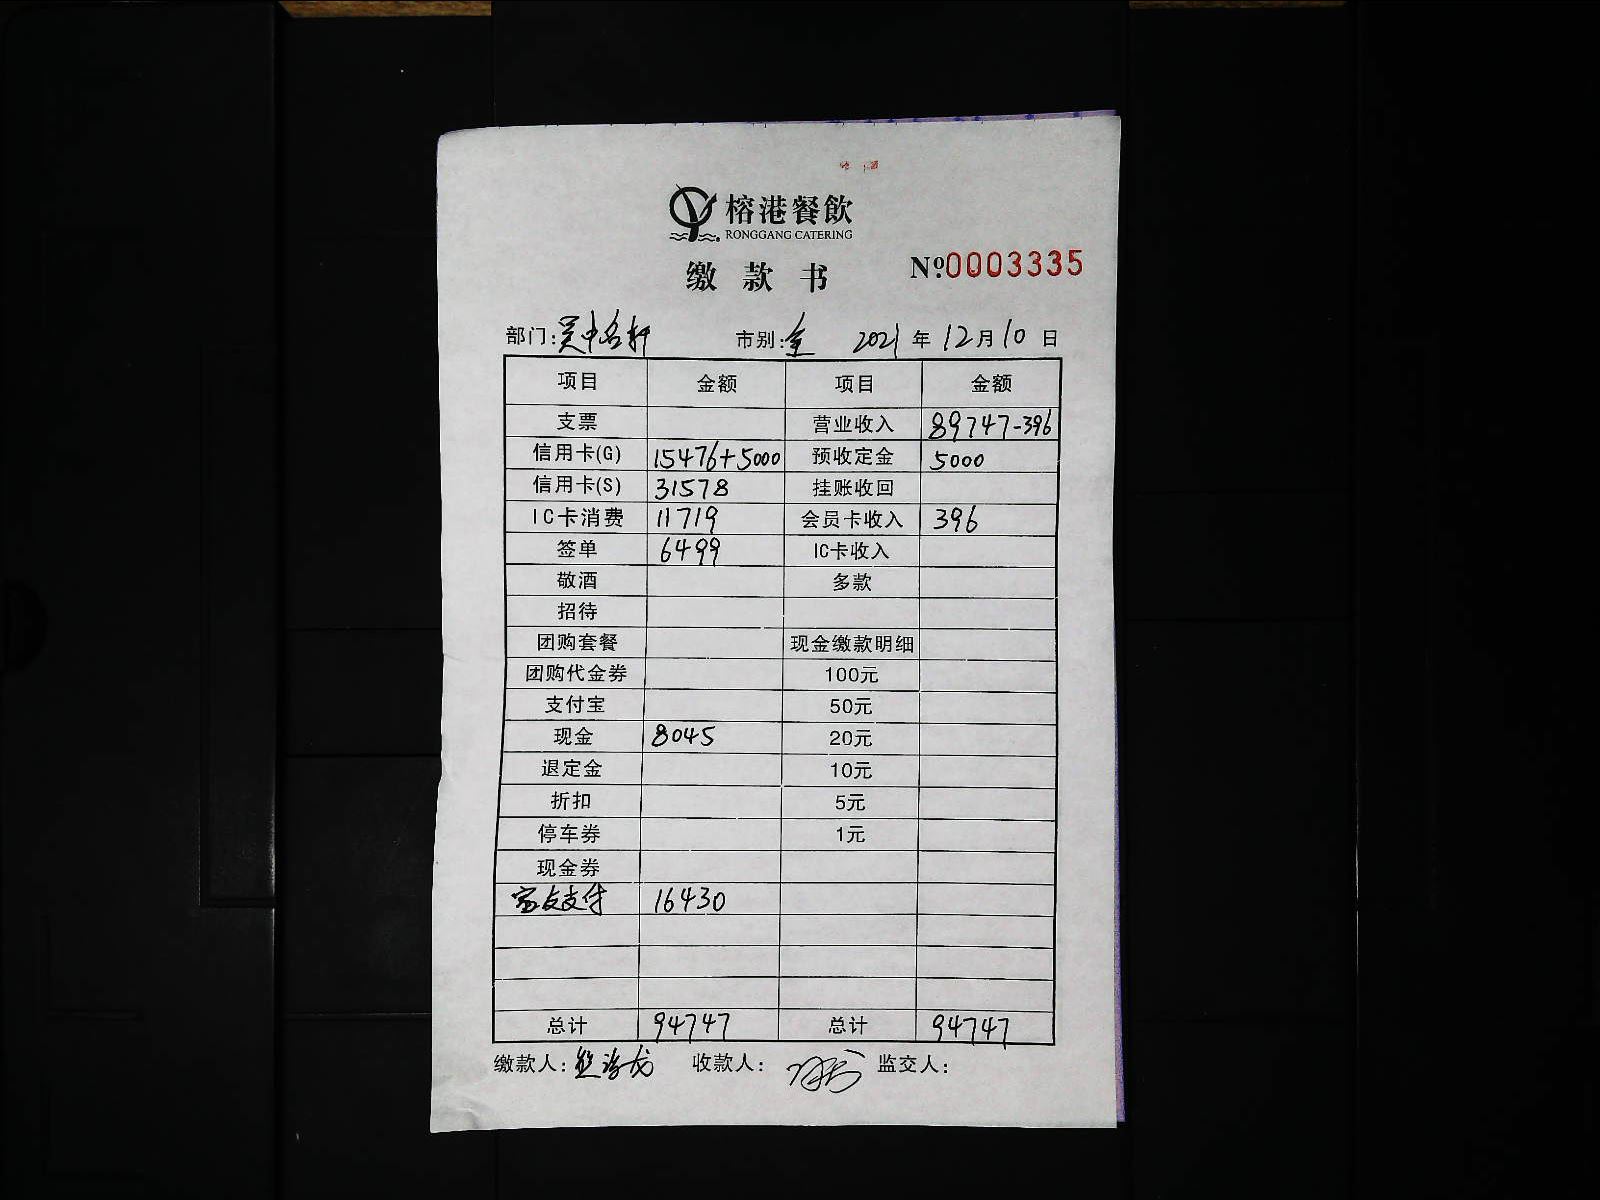 榕港餐飲
RONGGANG CATERING
缴款书 №0003335
部门:吴中名轩 市别:全 2021年12月10日
项目 金额 项目 金额
支票 营业收入 89747-396
信用卡(G) 15476+5000 预收定金 5000
信用卡(S) 31578 挂账收回
IC卡消费 11719 会员卡收入 396
签单 6499 IC卡收入
敬酒 多款
招待
团购套餐 现金缴款明细
团购代金券 100元
支付宝 50元
现金 8045 20元
退定金 10元
折扣 5元
停车券 1元
现金券
支付 16430
总计 94747 总计 94747
缴款人: 收款人: 监交人: